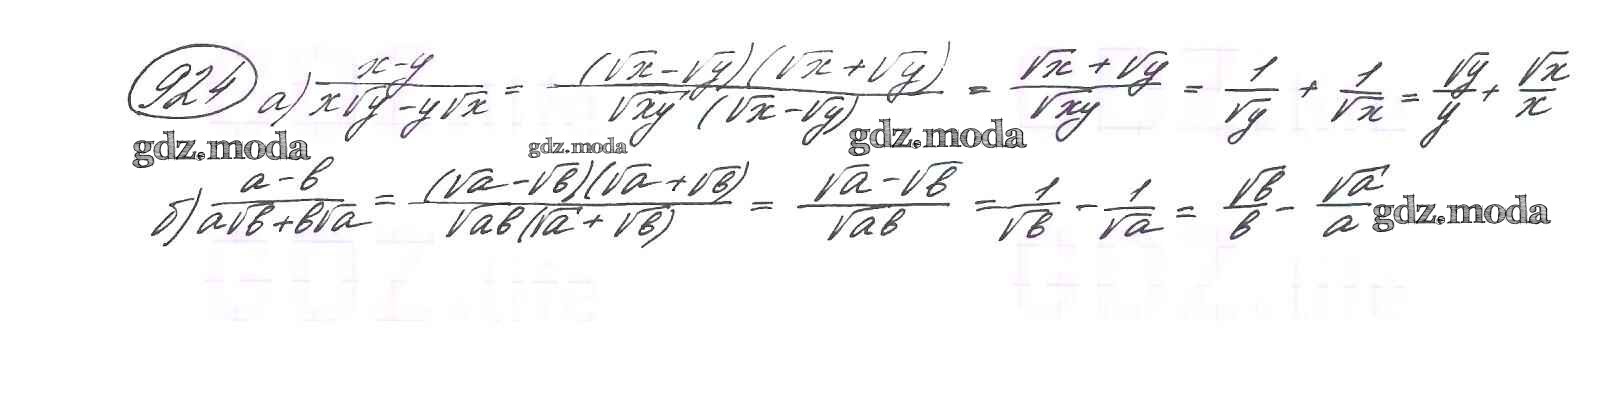 924 а) (x-y)/(x√y-y√x) = ((√x-√y)(√x+√y))/(√xy (√x-√y)) = (√x+√y)/√xy = 1/√y + 1/√x = √y/y + √x/x
gdz.moda gdz.moda gdz.moda
б) (a-в)/(a√в+в√a) = ((√a-√в)(√a+√в))/(√aв(√a+√в)) = (√a-√в)/√aв = 1/√в - 1/√a = √в/в - √a/a gdz.moda